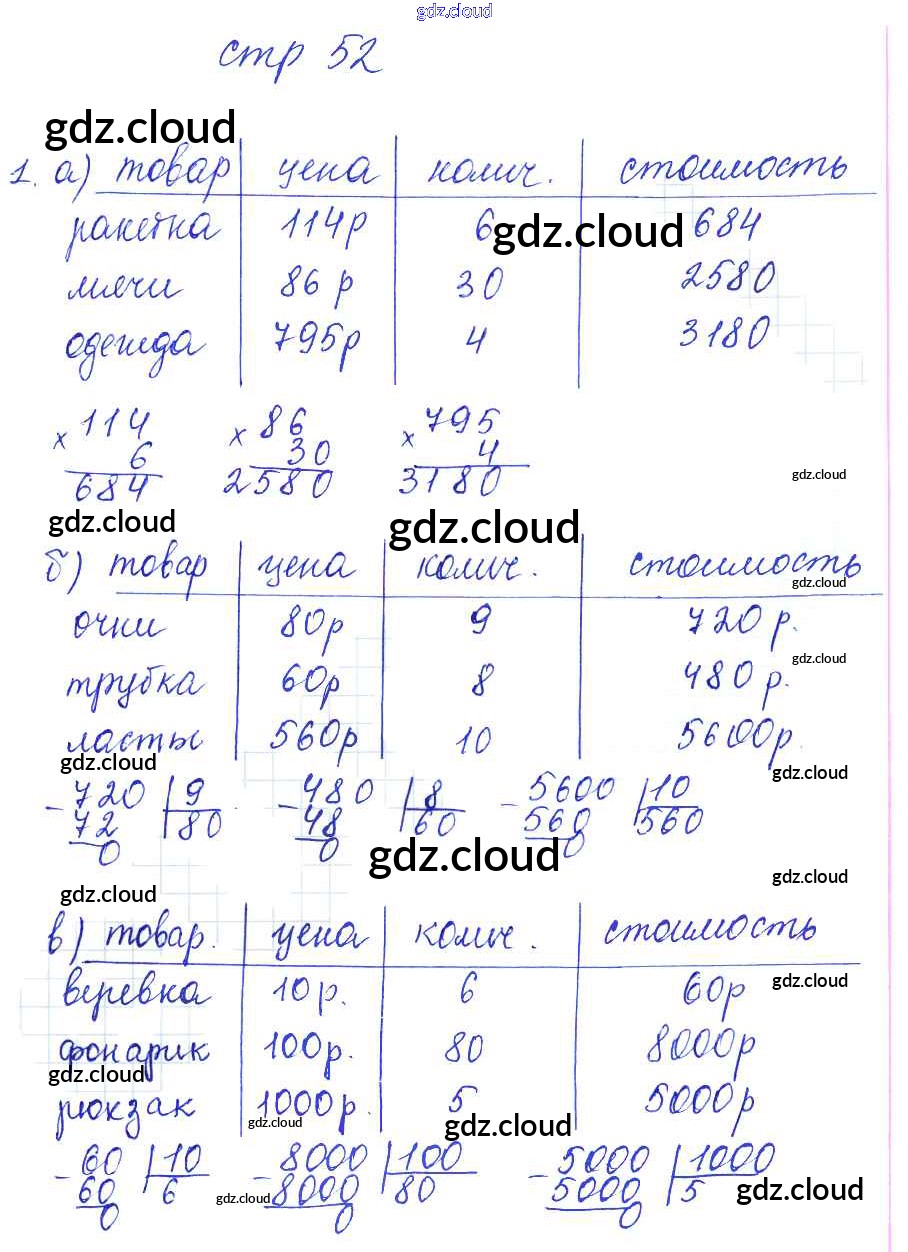 gdz.cloud
стр 52
gdz.cloud
1. а) товар цена колич. стоимость
ракетка 114р 6 684
gdz.cloud
мячи 86 р 30 2580
одежда 795р 4 3180
× 114 × 86 × 795
6 30 4
684 2580 3180
gdz.cloud
gdz.cloud gdz.cloud
б) товар цена колич. стоимость
gdz.cloud
очки 80р 9 720 р.
gdz.cloud
трубка 60р 8 480 р.
ласты 560р 10 5600р.
gdz.cloud gdz.cloud
- 720 9 - 480 8 - 5600 10
72 80 48 60 560 560
0 0 0
gdz.cloud
gdz.cloud gdz.cloud
в) товар. цена колич. стоимость
веревка 10р. 6 60р
gdz.cloud
фонарик 100р. 80 8000р
gdz.cloud
рюкзак 1000р. 5 5000р
gdz.cloud gdz.cloud
- 60 10 - 8000 100 - 5000 1000
60 6 8000 80 5000 5
gdz.cloud gdz.cloud
0 0 0